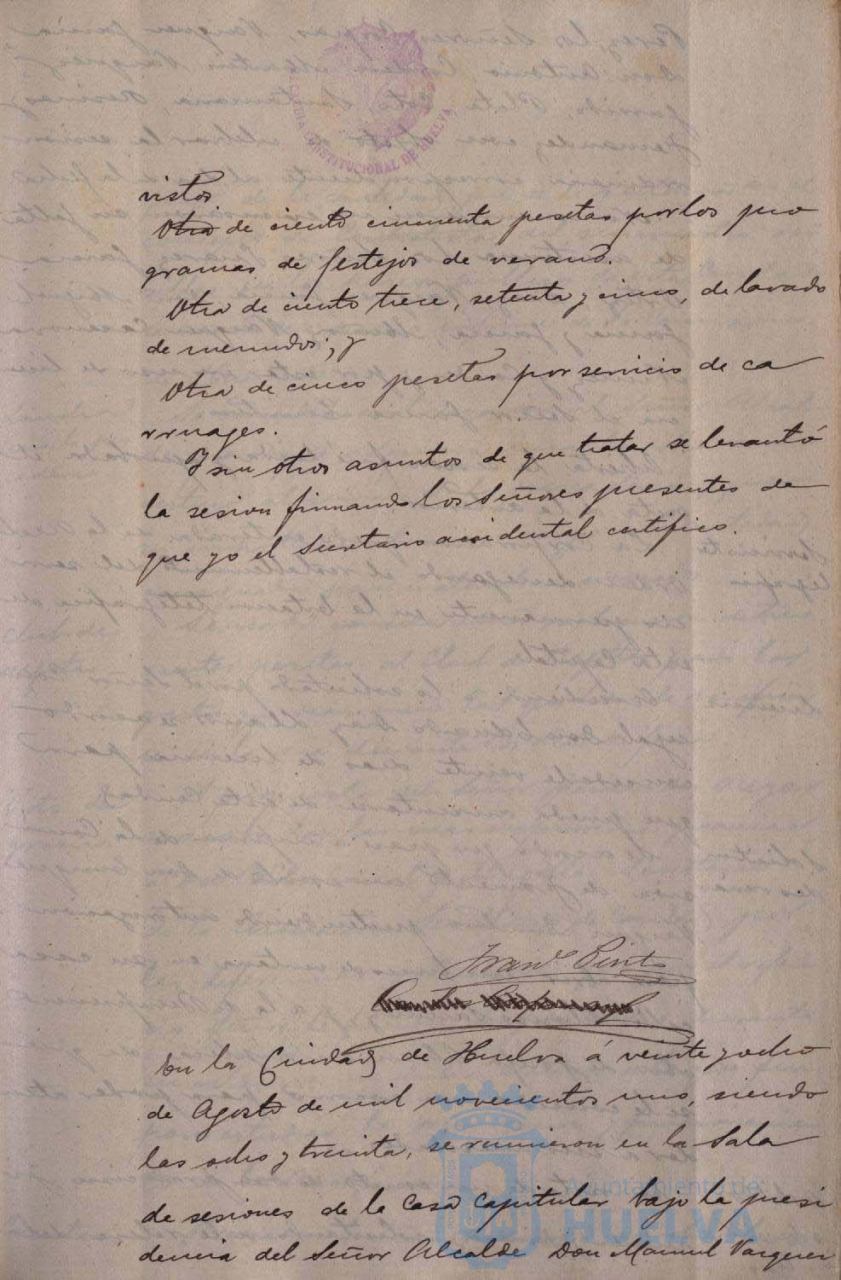 ALCALDIA CONSTITUCIONAL DE HUELVA
vistos.
Otra de ciento cincuenta pesetas por los pro
gramas de festejos de verano.
Otra de ciento trece, setenta y cinco, de lavado
de menudos; y
Otra de cinco pesetas por servicio de ca
rruages.
Y sin otros asuntos de que tratar se levantó
la sesion firmando los Señores presentes de
que yo el Secretario accidental certifico.
En la Ciudad de Huelva á veinte y ocho
de Agosto de mil novecientos uno, siendo
las ocho y treinta, se reunieron en la Sala
de sesiones de la casa capitular bajo la presi
dencia del Señor Alcalde Don Manuel Vazquez
Ayuntamiento de
HUELVA